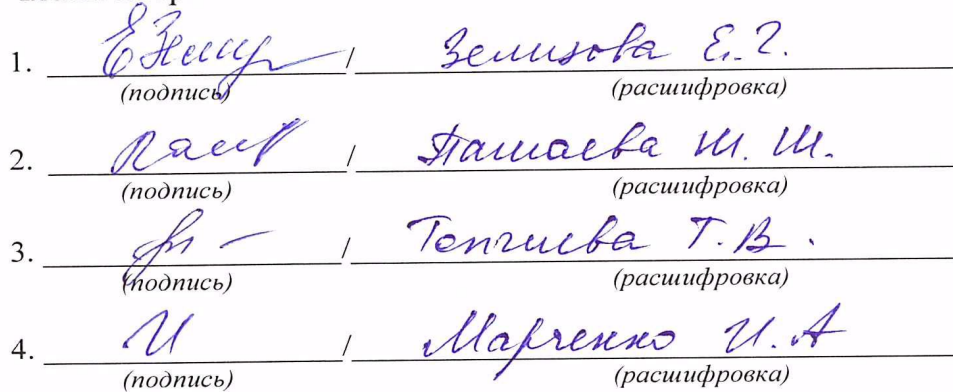 1. / Зелизова Е. Г.
(подпись) (расшифровка)
2. / Пашаева Ш. Ш.
(подпись) (расшифровка)
3. / Топчиева Т. В.
(подпись) (расшифровка)
4. И / Марченко И. А
(подпись) (расшифровка)